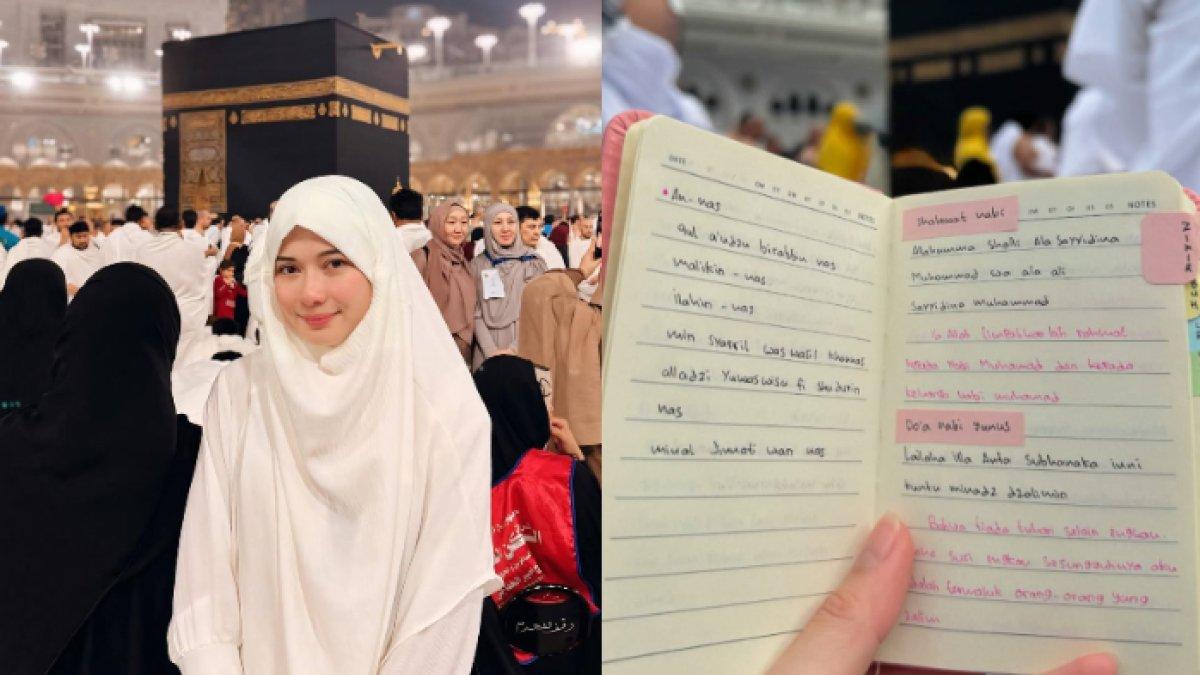 DATE
• An-nas
qul a'udzu birabbin nas
malikin - nas
ilahin - nas
min syarril waswasil khannas
alladzi Yuwaswisu fi shudurin
nas
minal Jinnati wan nas
NOTES
Shalawat nabi
Allahumma Shalli Ala Sayyidina
Muhammad wa ala ali
Sayyidina muhammad
Ya Allah limpahkanlah rahmat
kepada Nabi Muhammad dan kepada
keluarga nabi muhammad
Do'a nabi yunus
Lailaha illa Anta Subhanaka inni
kuntu minadz dzalimin
Bahwa tiada tuhan selain engkau.
suci engkau sesungguhnya aku
adalah termasuk orang-orang yang
zalim
NOTES